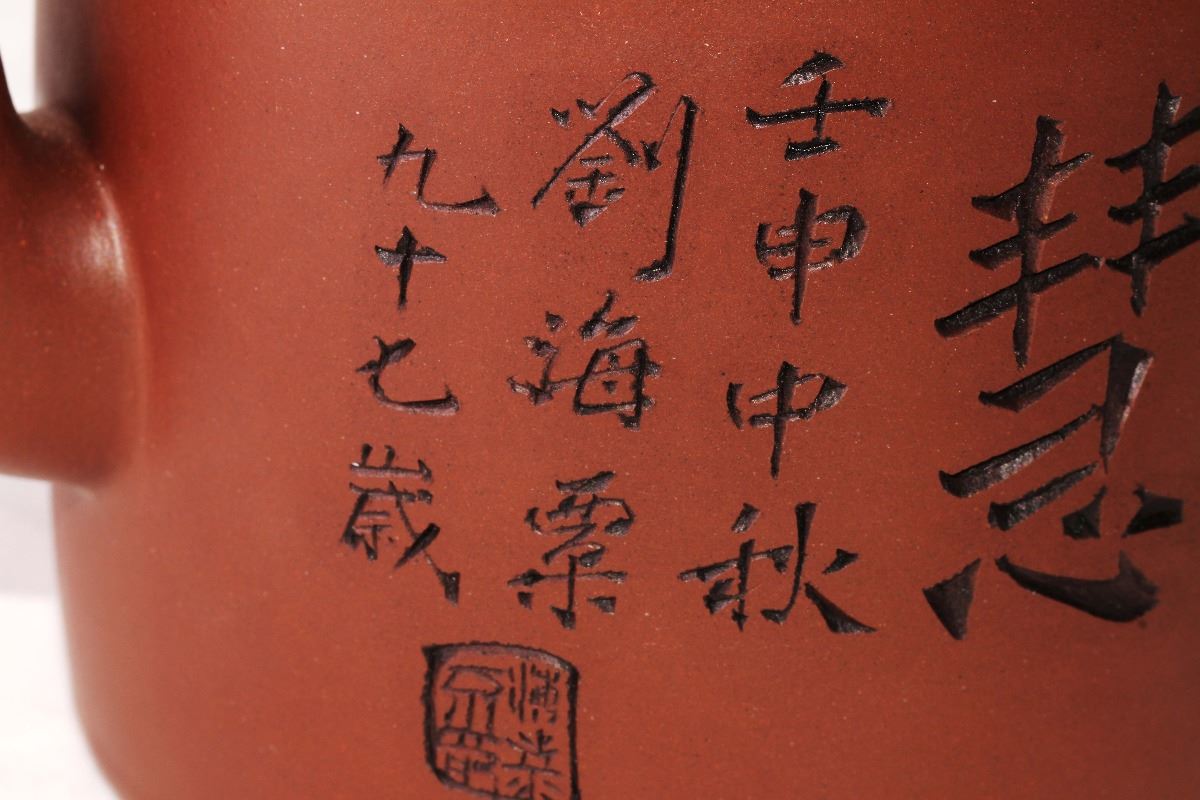 慧
壬申中秋
劉海粟
九十七歲